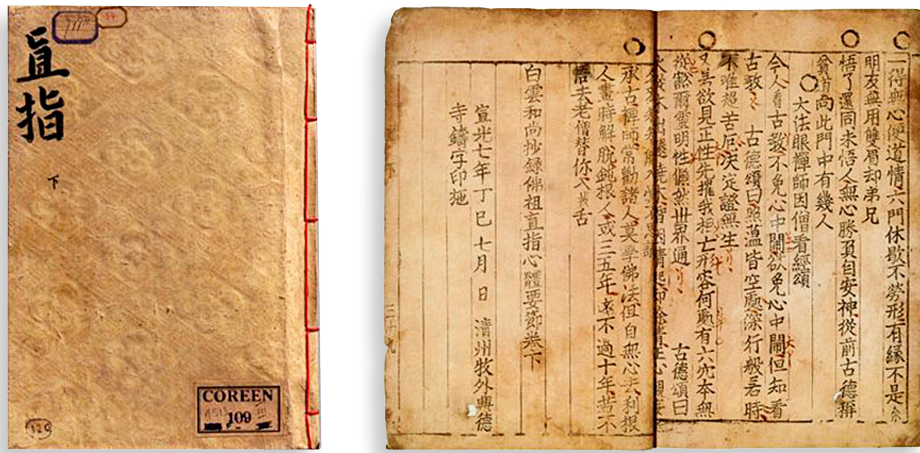 直指
下
COREEN
109
一得無心便道情六門休歇不勞形有緣不是余
朋友無用雙眉却弟兄
悟了還同未悟人無心勝負自安神從前古德稱
貧道向此門中有幾人
大法眼禪師因僧看經頌
今人看古教不免心中鬧欲免心中鬧但知看
古教 古德頌曰照薀皆空處深行般若時
不唯超苦厄決定證無生
欲見正性先摧我相亡形容何處有六穴本無
從豁爾靈明性翛然世界通 古德頌曰
承古禪師常勸諸人莫學佛法但自無心去利根
人晝時解脫鈍根人或三五年遠不過十年若不
悟去老僧替你入拔舌
白雲和尚抄錄佛祖直指心體要節卷下
宣光七年丁巳七月 日 淸州牧外興德
寺鑄字印施